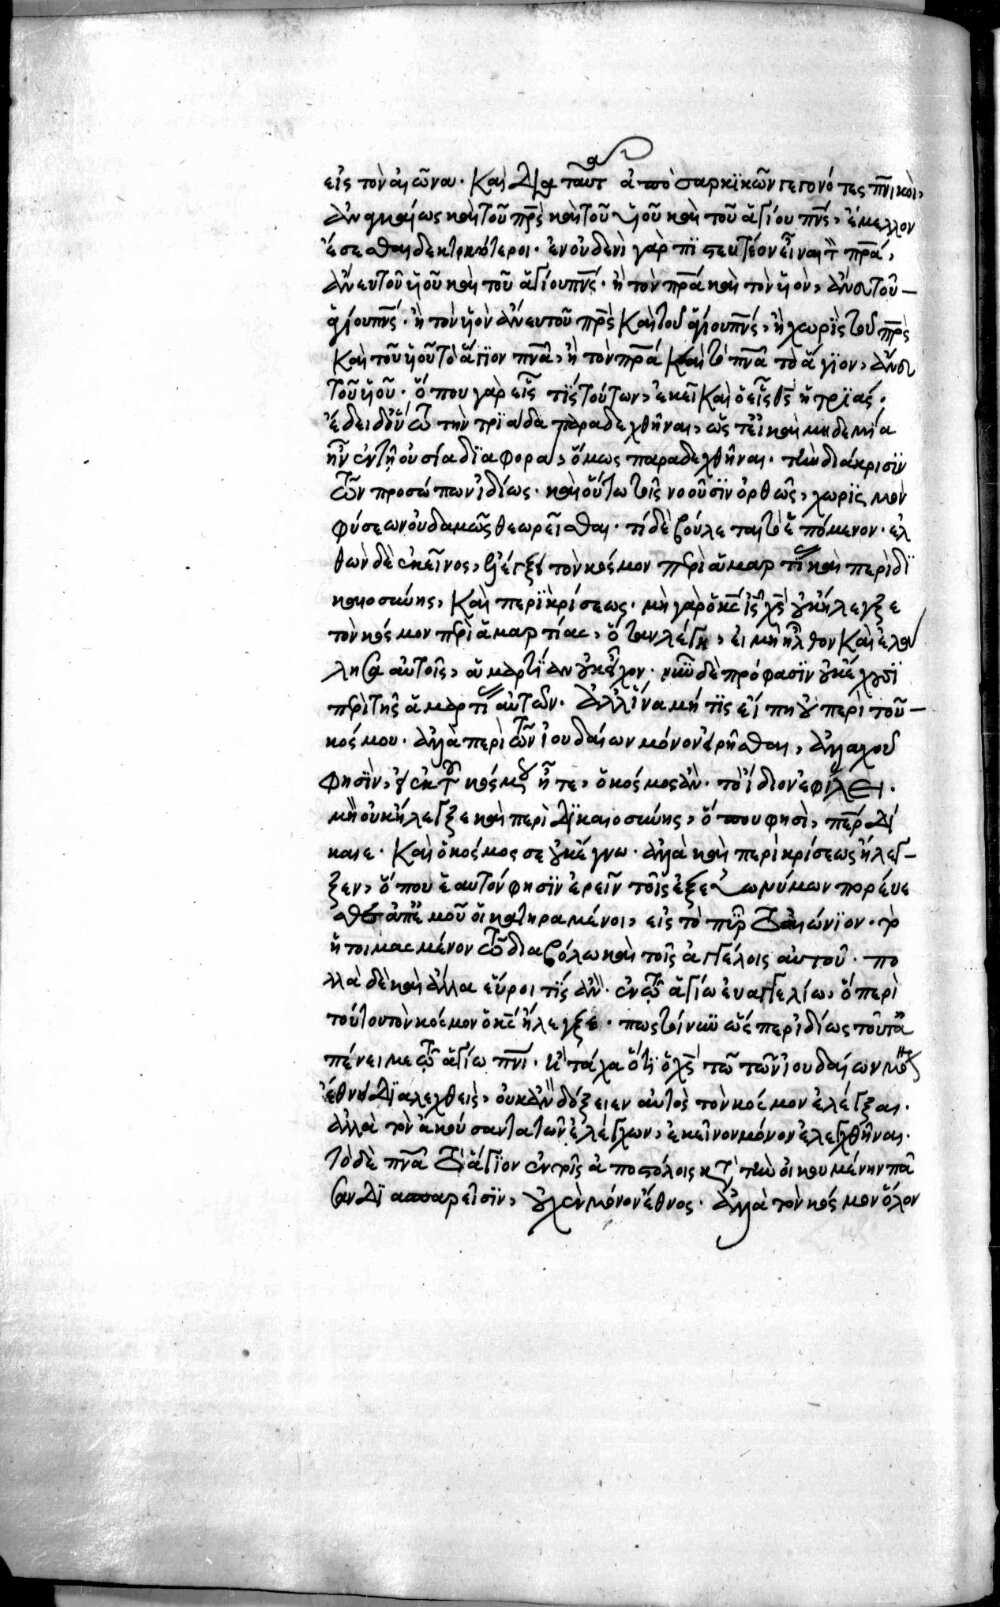 εἰς τὸν αἰῶνα· Καὶ διὰ ταῦτα ἀπὸ σαρκϊκῶν γεγονότες πν̅ικοὶ,
ἀναγκαίως καὶ τοῦ πρ̅ς καὶ τοῦ ὑϊοῦ καὶ τοῦ ἁγίου πν̅ς, ἔμελλον
ἔσεσθαι δεκτικώτεροι· ἐν οὐδενὶ γὰρ πϊστευτέον εἶναι τὸν πρ̅α,
ἄνευ τοῦ ὑϊοῦ καὶ τοῦ ἁγίου πν̅ς· ἢ τὸν πρ̅α καὶ τὸν ὑϊὸν, ἄνευ τοῦ
ἁγίου πν̅ς· ἢ τὸν ὑϊὸν ἄνευ τοῦ πρ̅ς Καὶ τοῦ ἁγίου πν̅ς, ἢ χωρὶς τοῦ πρ̅ς
Καὶ τοῦ ὑϊοῦ τὸ ἅγϊον πν̅α, ἢ τὸν πρ̅α Καὶ τὸ πν̅α τὸ ἅγϊον, ἄνευ
τοῦ ὑϊοῦ· ὅπου γὰρ εἷς τϊς τούτων, ἐκεῖ Καὶ ὁ εἷς θς̅ ἡ τρϊάς·
ἔδει δ' οὖν τὴν τρϊάδα παραδεχθῆναι, ὥστε εἰ καὶ μηδεμία
ἦν ἐν τῇ οὐσία δϊαφορα, ὅμως παραδεχθῆναι· τὴν διάκρισϊν
τῶν προσώπων ἰδίως· καὶ οὕτω τοῖς νοοῦσϊν ὀρθῶς, χωρϊς μὲν
φύσεων οὐδαμῶς θεωρεῖσθαι· τί δὲ βούλεται τὸ ἑπόμενον· ἐλ
θὼν δὲ ἐκεῖνος, ἐλέγξει τὸν κόσμον περὶ ἁμαρτίας καὶ περὶ δϊ
καιοσύνης, Καὶ περϊ κρίσεως· μὴ γὰρ ὁ κς̅ ις̅ χς̅ οὐκ ἤλεγξε
τὸν κόσμον περὶ ἁμαρτίας, ὅταν λέγη, εἰ μὴ ἦλθον Καὶ ἐλά
λησα αὐτοῖς, ἁμαρτίαν οὐκ εἶχον· νῦν δὲ πρόφασϊν οὐκ ἔχουσϊ
περὶ τῆς ἁμαρτίας αὐτῶν· Ἀλλ' ἵνα μή τϊς εἴπη οὐ περὶ τοῦ
κόσμου· ἀλλὰ περὶ τῶν ἰουδαίων μόνον εἰρῆσθαι, ἀλλαχοῦ
φησϊν, εἰ ἐκ τοῦ κόσμου ἦτε, ὁ κόσμος ἂν· τὸ ἴδιον ἐφίλει·
μὴ οὐκ ἤλεγξε καὶ περὶ δϊκαιοσύνης, ὅπου φησὶ, πε̅ρ δί
καιε· Καὶ ὁ κόσμος σε οὐκ ἔγνω· ἀλλὰ καὶ περὶ κρίσεως ἤλεγ
ξεν, ὅπου ἑαυτόν φησϊν ἐρεῖν τοῖς ἐξ εὐωνύμων πορεύε
σθε ἀπ' ἐμοῦ οἱ κατηραμένοι, εἰς τὸ πῦρ τὸ αἰώνϊον· τὸ
ἡτοιμασμένον τῷ διαβόλω καὶ τοῖς ἀγγέλοις αὐτοῦ· πο
λλὰ δὲ καὶ ἄλλα εὕροι τϊς ἂν· ἐν τῷ ἁγίω ἐυαγγελίω, ὅπερὶ
τούτου τὸν κόσμον ὁ κς̅ ἤλεγξε· πως τοίνυν ὥσπερ ἰδίως τοῦτο
ἀπένειμε τῷ ἁγίω πν̅ι· ἢ τάχα ὅτϊ ὁ χς̅ τῶ τῶν ἰουδαίων μόνῳ
ἔθνει δϊαλεχθεὶς, οὐκ ἂν δόξειεν αὐτὸς τὸν κόσμον ἐλέγξαι·
ἀλλὰ τὸν ἀκούσαντα τῶν ἐλέγχων, ἐκεῖνον μόνον ἐλεγχθῆναι·
τὸ δὲ πν̅α τὸ ἅγϊον ἐν τοῖς ἀποστόλοις κατὰ τὴν οἰκουμένην πᾶ
σαν δϊασπαρεῖσϊν, οὐχ ἓν μόνον ἔθνος· ἀλλὰ τὸν κόσμον ὅλον